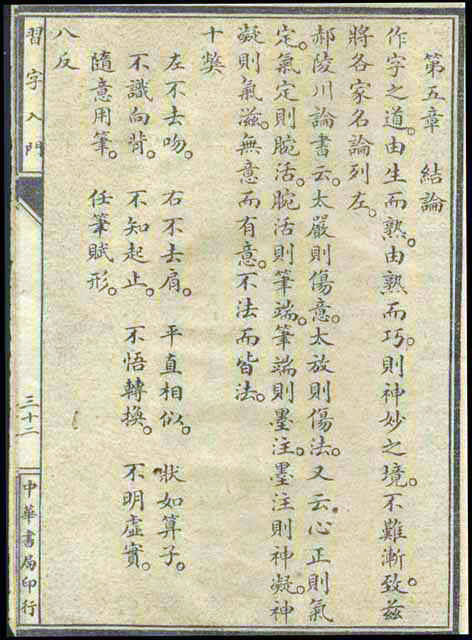 第五章　結論
作字之道。由生而熟。由熟而巧。則神妙之境。不難漸致茲
將各家名論列左。
郝陵川論書云。太嚴則傷意。太放則傷法。又云。心正則氣
定。氣定則腕活。腕活則筆端。筆端則墨注。墨注則神凝。神
凝則氣滋。無意而有意。不法而皆法。
十獘
左不去吻。　右不去肩。　平直相似。　狀如算子。
不識向背。　不知起止。　不悟轉換。　不明虛實。
隨意用筆。　任筆賦形。
八反
習字入門
三十二
中華書局印行